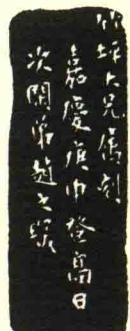 大兄屬刻
嘉慶庚申登高日
次閑弟趙之琛